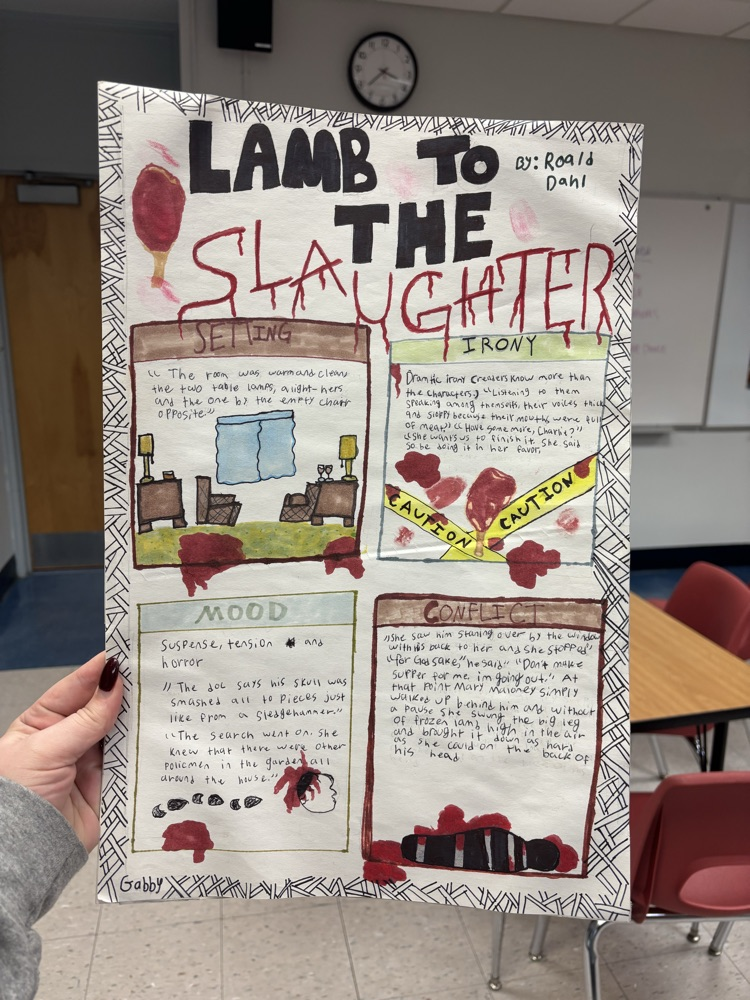 LAMB TO
BY: Roald
Dahl
THE
SLAUGHTER
SETTING
“ The room was warm and clean
the two table lamps, alight-hers
and the one by the empty chair
opposite.”
IRONY
Dramatic irony (readers know more than
the characters.) “Listening to them
speaking among themselfs, their voices thick
and sloppy because their mouths were full
of meat.” “Have some more, Charlie?”
“She wants us to finish it. She said
So be doing it in her favor.
CAUTION
CAUTION
MOOD
Suspense, tension and
horror
" The doc says his skull was
smashed all to pieces just
like from a sledgehammer."
"The search went on. she
knew that there were other
policmen in the garden all
around the house."
CONFLICT
"She saw him standing over by the window
with his back to her and she stopped"
"for God sake," he said. "Don't make
supper for me. im going out." At
that point Mary maloney simply
walked up behind him and without
a pause she swung the big leg
of frozen lamb high in the air
and brought it down as hard
as she could on the back of
his head.
Gabby